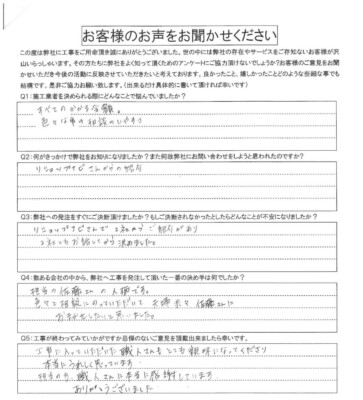 お客様のお声をお聞かせください
この度は弊社に工事をご用命頂き誠にありがとうございました。世の中には弊社の存在やサービスをご存知ないお客様が沢
山いらっしゃいます。その方たちに弊社をよく知って頂くためのアンケートにご協力頂けないでしょうか?お客様のご意見をお聞
かせいただき今後の活動に反映させていただきたいと考えております。良かったこと、嬉しかったことどのような些細な事でも
結構です。是非ご協力お願い致します。(出来るだけ具体的に書いて頂ければ幸いです)
Q1:施工業者を決められる際にどんなことで悩んでいましたか?
すべてのかかる金額。
色々な事の相談のしやすさ
Q2:何がきっかけで弊社をお知りになりましたか?また何故弊社にお問い合わせをしようと思われたのですか?
リショップナビさんからの紹介
Q3:弊社への発注をすぐにご決断頂けましたか?もしご決断されなかったとしたらどんなことが不安になりましたか?
リショップナビさんで2社からご紹介があり
2社ともお話してから決めました。
Q4:数ある会社の中から、弊社へ工事を発注して頂いた一番の決め手は何でしたか?
担当の佐藤さんの人柄です。
色々と相談にのっていただいて夫婦共々佐藤さんに
お任せしたいと思いました。
Q5:工事が終わってみていかがですか忌憚のないご意見を頂戴出来ましたら幸いです。
工事に入っていただいた職人さんもとても親味になってくださり
本当にうれしく思っています。
担当の方、職人さんに本当に感謝しています。
ありがとうございました